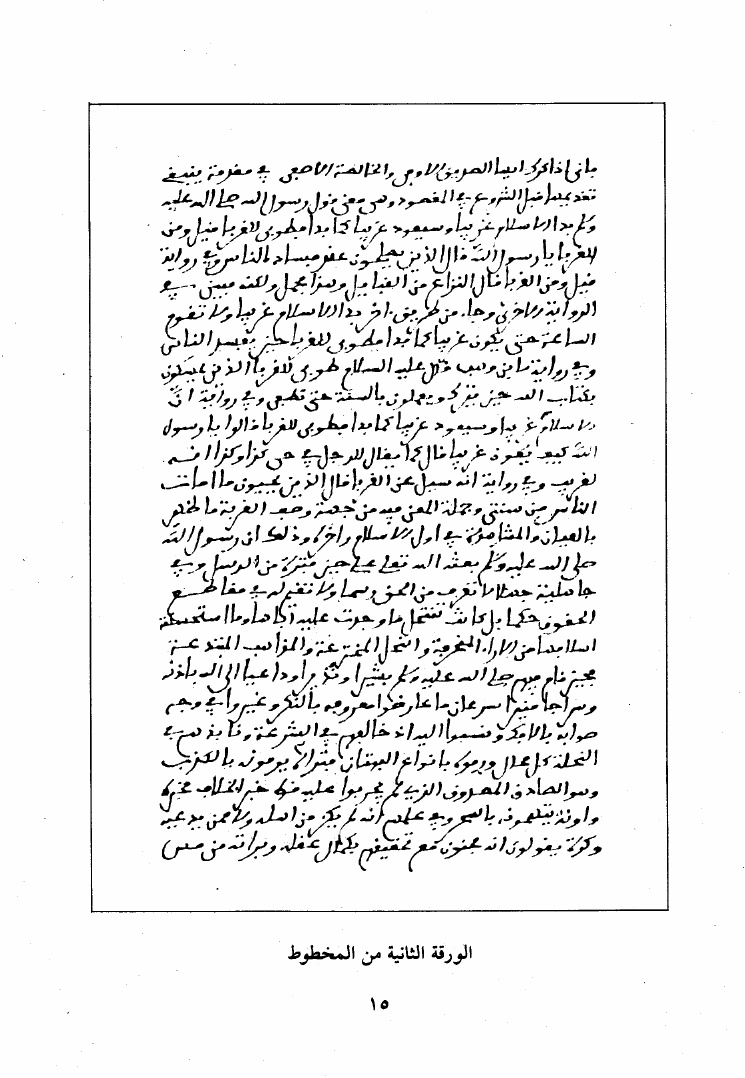 باني اذاكرك ايها الصديق الاوفى والخالصة الاصفى في مقدمة ينبغي
تقديمها قبل الشروع في المقصود وهي معنى قول رسول الله صلى الله عليه
وسلم بدا الاسلام غريبا وسيعود غريبا كما بدا فطوبى للغربا قيل ومن
الغربا يا رسول الله قال الذين يصلحون عند فساد الناس وفي رواية
قيل ومن الغربا قال النزاع من القبايل وهذا مجمل ولكنه مبين في
الرواية الاخرى وجاء من طريق اخر بدا الاسلام غريبا ولا تقوم
الساعة حتى يكون غريبا كما بدا فطوبى للغربا حين يفسد الناس
وفي رواية لابن وهب قال عليه السلام طوبى للغربا الذين يمسكون
بكتاب الله حين يترك ويعملون بالسنة حين تطفى وفي رواية ان
الاسلام بدا غريبا وسيعود غريبا كما بدا فطوبى للغربا قالوا يا رسول
الله كيف يكون غريبا قال كما يقال للرجل في حي كذا وكذا انه
لغريب وفي رواية انه سيل عن الغربا قال الذين يحيون ما امات
الناس من سنتي وجملة المعنى فيه من جهة وصف الغربة ما ظهر
بالعيان والمشاهدة في اول الاسلام واخره وذلك ان رسول الله
صلى الله عليه وسلم بعثه الله تعلى على حين فترة من الرسل وفي
جاهلية جهلاء لا تعرف من الحق رسما ولا تقيم له في مقاطع
الحقوق حكما بل كانت تنتحل ما وجدت عليه اباءها وما استحسنته
اسلافها من الاراء المنحرفة والنحل المخترعة والمذاهب المبتدعة
فحين قام فيهم صلى الله عليه وسلم بشيرا ونذيرا وداعيا الى الله باذنه
وسراجا منيرا سرعان ما عارضوا معروفه بالنكر وغيروا في وجه
صوابه بالافك ونسبوا اليه اذ خالفهم في الشرعة ونابذهم في
النحلة كل محال ورموه بانواع البهتان فتارة يرمونه بالكذب
وهو الصادق المصدوق الذي لم يجربوا عليه قط خبرا بخلاف مخبره
واونة يتهمونه بالسحر وفي علمهم انه لم يكن من اهله ولا ممن يدعيه
وكرة يقولون انه مجنون مع تحقيقهم بكمال عقله وبراته من مس
الورقة الثانية من المخطوط
١٥